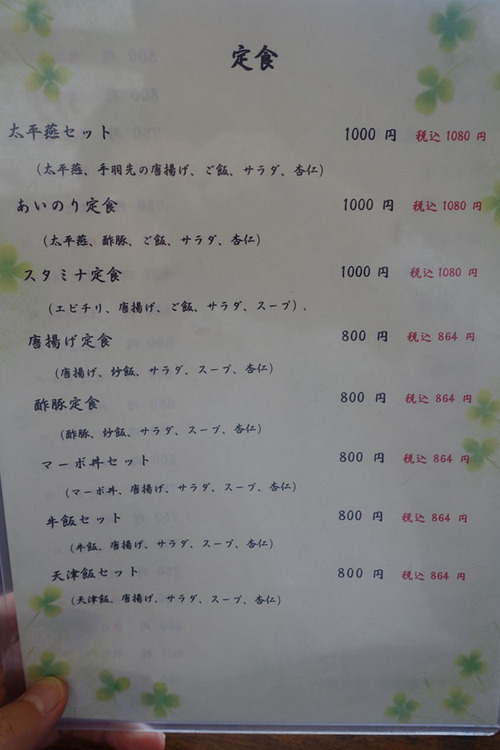 定食
太平燕セット 1000 円 税込 1080 円
(太平燕、手羽先の唐揚げ、ご飯、サラダ、杏仁)
あいのり定食 1000 円 税込 1080 円
(太平燕、酢豚、ご飯、サラダ、杏仁)
スタミナ定食 1000 円 税込 1080 円
(エビチリ、唐揚げ、ご飯、サラダ、スープ)。
唐揚げ定食 800 円 税込 864 円
(唐揚げ、炒飯、サラダ、スープ、杏仁)
酢豚定食 800 円 税込 864 円
(酢豚、炒飯、サラダ、スープ、杏仁)
マーボ丼セット 800 円 税込 864 円
(マーボ丼、唐揚げ、サラダ、スープ、杏仁)
牛飯セット 800 円 税込 864 円
(牛飯、唐揚げ、サラダ、スープ、杏仁)
天津飯セット 800 円 税込 864 円
(天津飯、唐揚げ、サラダ、スープ、杏仁)